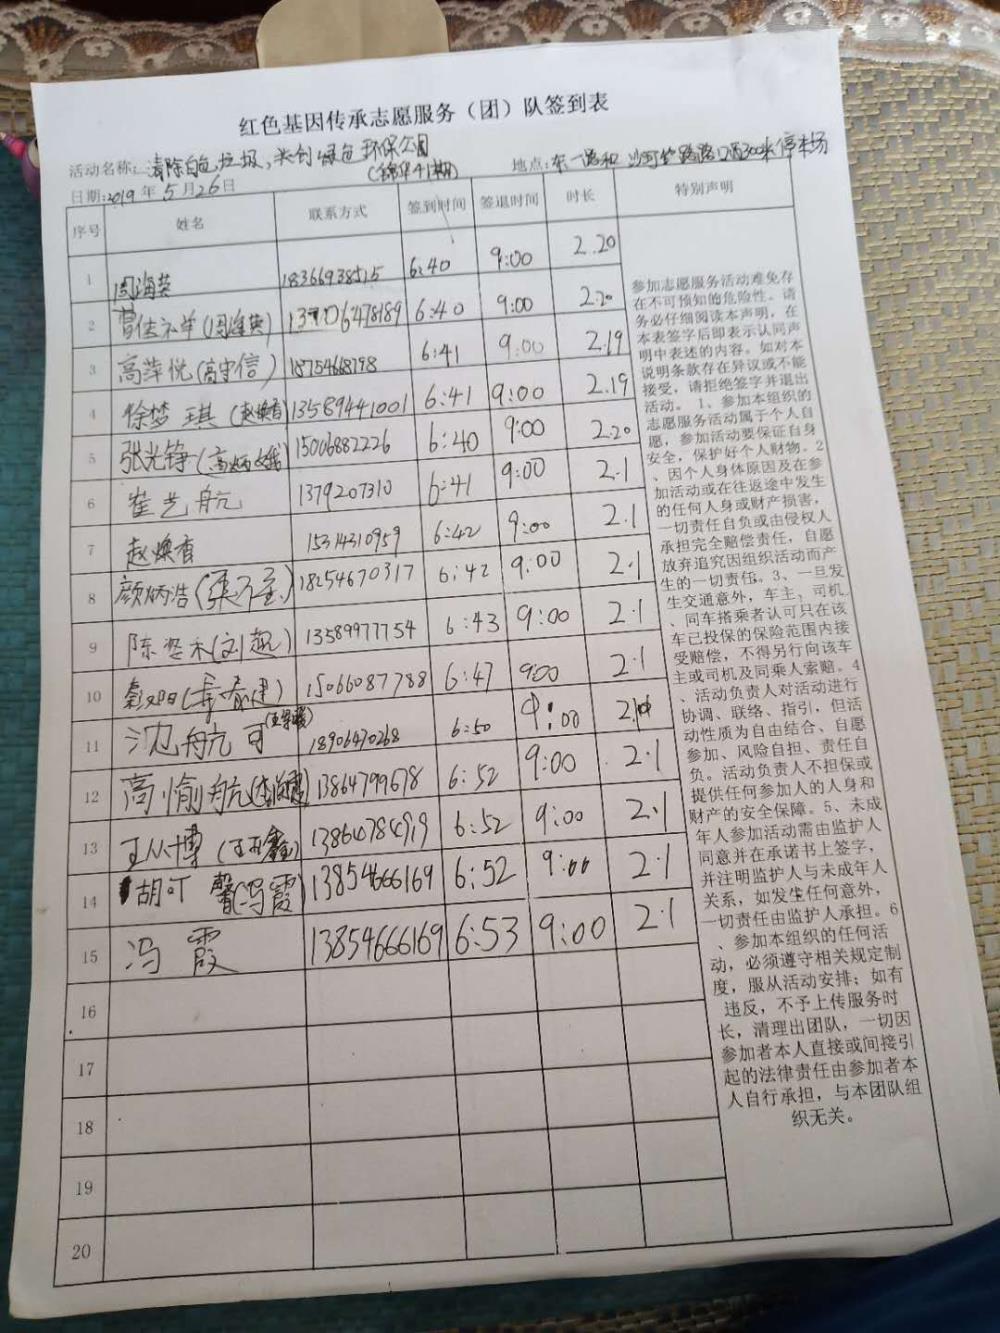 红色基因传承志愿服务（团）队签到表
活动名称: 清除白色垃圾、共创绿色环保公园
(锦华41期)
地点: 东一路和 沙河 路路口西300米停车场
日期: 2019年5月26日
序号 姓名 联系方式 签到时间 签退时间 时长 特别声明
1 周海英 18366938515 6:40 9:00 2.20
2 曹佳 (周海英) 13706478189 6:40 9:00 2.20
3 高萍悦(高守信) 18754668798 6:41 9:00 2.19
4 徐梦琪 (赵焕香) 13589441001 6:41 9:00 2.19
5 张光铮(高炳娥) 15006882226 6:40 9:00 2.20
6 崔艺航 1379207310 6:41 9:00 2.1
7 赵焕香 15314310959 6:42 9:00 2.1
8 颜炳浩 18254670317 6:42 9:00 2.1
9 陈 禾(刘 ) 13589977754 6:43 9:00 2.1
10 15066087788 6:47 9:00 2.1
11 沈航可 18906470268 6:50 9:00 2.1
12 高愉航 13864799678 6:52 9:00 2.1
13 王从博 (王 鑫) 13864784919 6:52 9:00 2.1
14 胡可馨(冯霞) 13854666169 6:52 9:00 2.1
15 冯霞 13854666169 6:53 9:00 2.1
16
17
18
19
20
参加志愿服务活动难免存
在不可预知的危险性。请
务必仔细阅读本声明，在
本表签字后即表示认同声
明中表述的内容。如对本
说明条款存在异议或不能
接受，请拒绝签字并退出
活动。 1、参加本组织的
志愿服务活动属于个人自
愿，参加活动要保证自身
安全，保护好个人财物。2
、因个人身体原因及在参
加活动或在往返途中发生
的任何人身或财产损害，
一切责任自负或由侵权人
承担完全赔偿责任，自愿
放弃追究因组织活动而产
生的一切责任。3、一旦发
生交通意外，车主、司机
、同车搭乘者认可只在该
车已投保的保险范围内接
受赔偿，不得另行向该车
主或司机及同乘人索赔。4
、活动负责人对活动进行
协调、联络、指引，但活
动性质为自由结合、自愿
参加、风险自担、责任自
负。活动负责人不担保或
提供任何参加人的人身和
财产的安全保障。5、未成
年人参加活动需由监护人
同意并在承诺书上签字，
并注明监护人与未成年人
关系，如发生任何意外，
一切责任由监护人承担。6
、参加本组织的任何活
动，必须遵守相关规定制
度，服从活动安排；如有
违反，不予上传服务时
长，清理出团队，一切因
参加者本人直接或间接引
起的法律责任由参加者本
人自行承担，与本团队组
织无关。